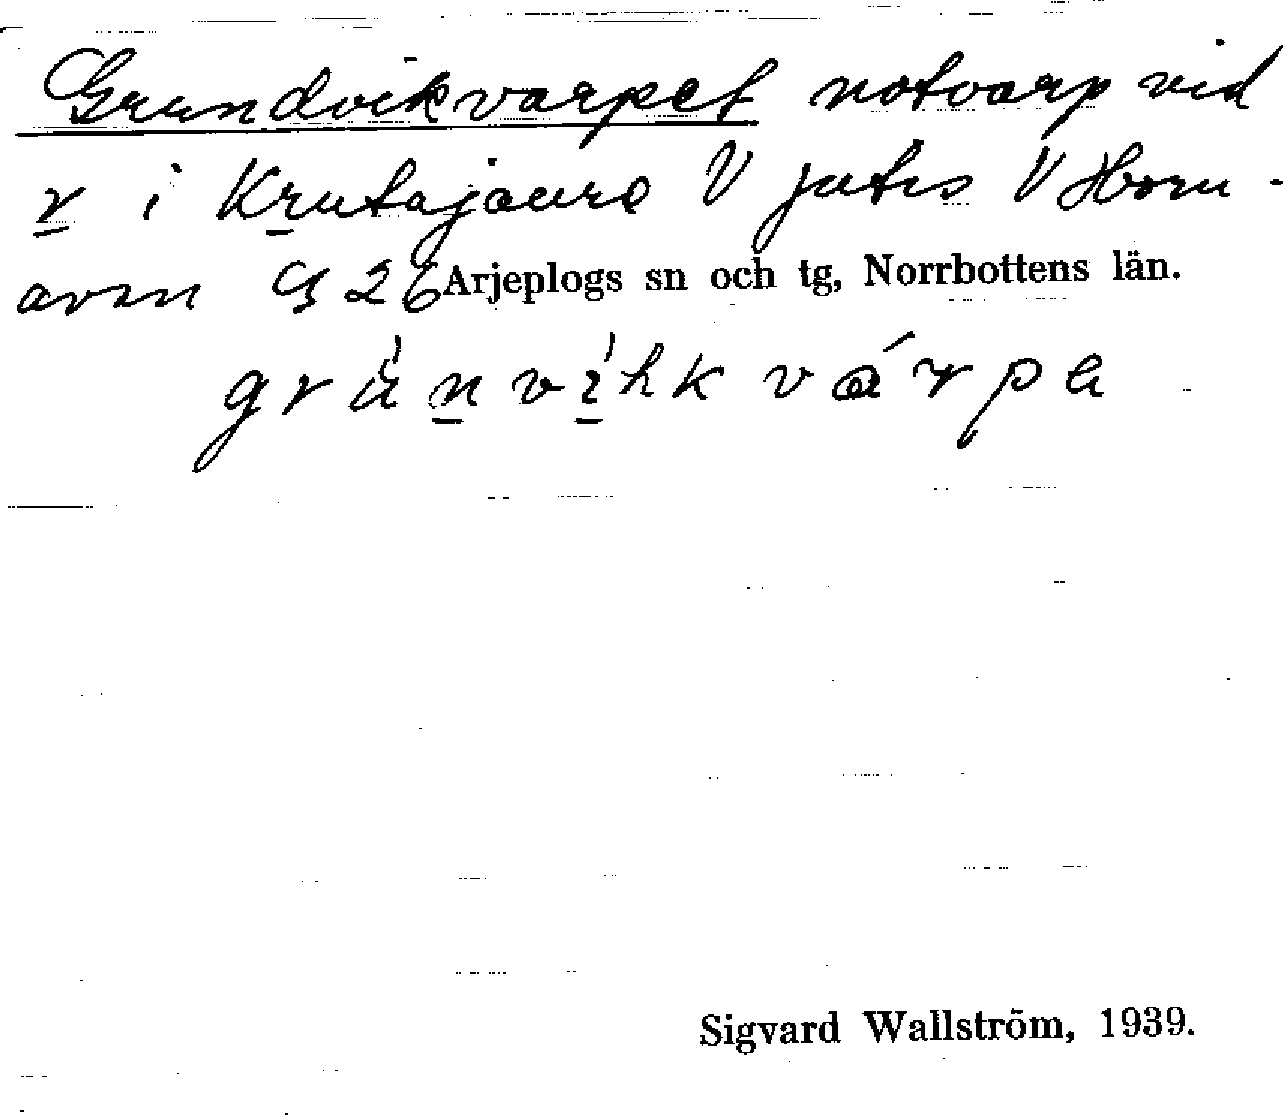 Grundvikvarpet notvarp vid
v i Krutajaure V Jutis V Horn-
aven G 26 Arjeplogs sn och tg, Norrbottens län.
grùnvìhkvárpa
Sigvard Wallström, 1939.